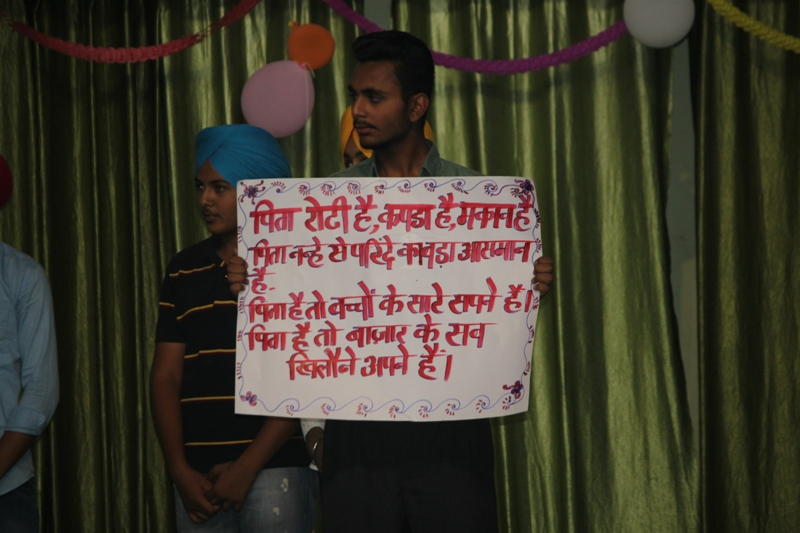 पिता रोटी है, कपडा है, मकान है
पिता नन्हे से परिंदे का बड़ा आसमान
है-
पिता है तो बच्चों के सारे सपने हैं।
पिता है तो बाज़ार के सब
खिलौने अपने हैं।